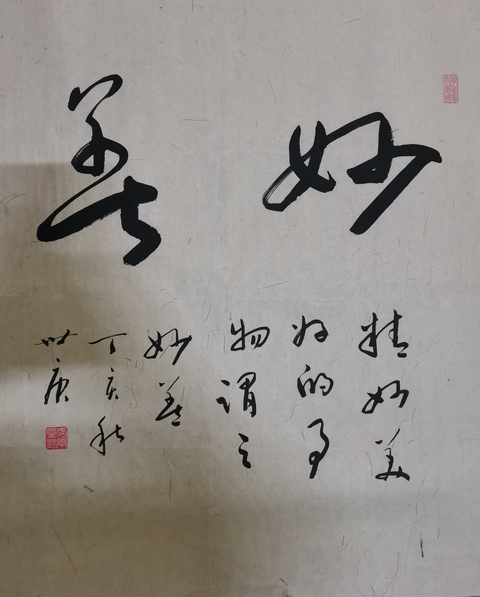 妙善
精妙美
好的事
物谓之
妙善
丁亥秋
世庚